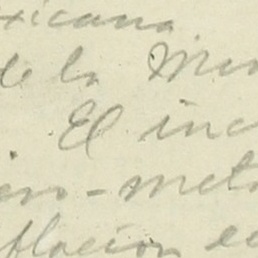 xicana
de la Min
El inc
ero-meta
flación e